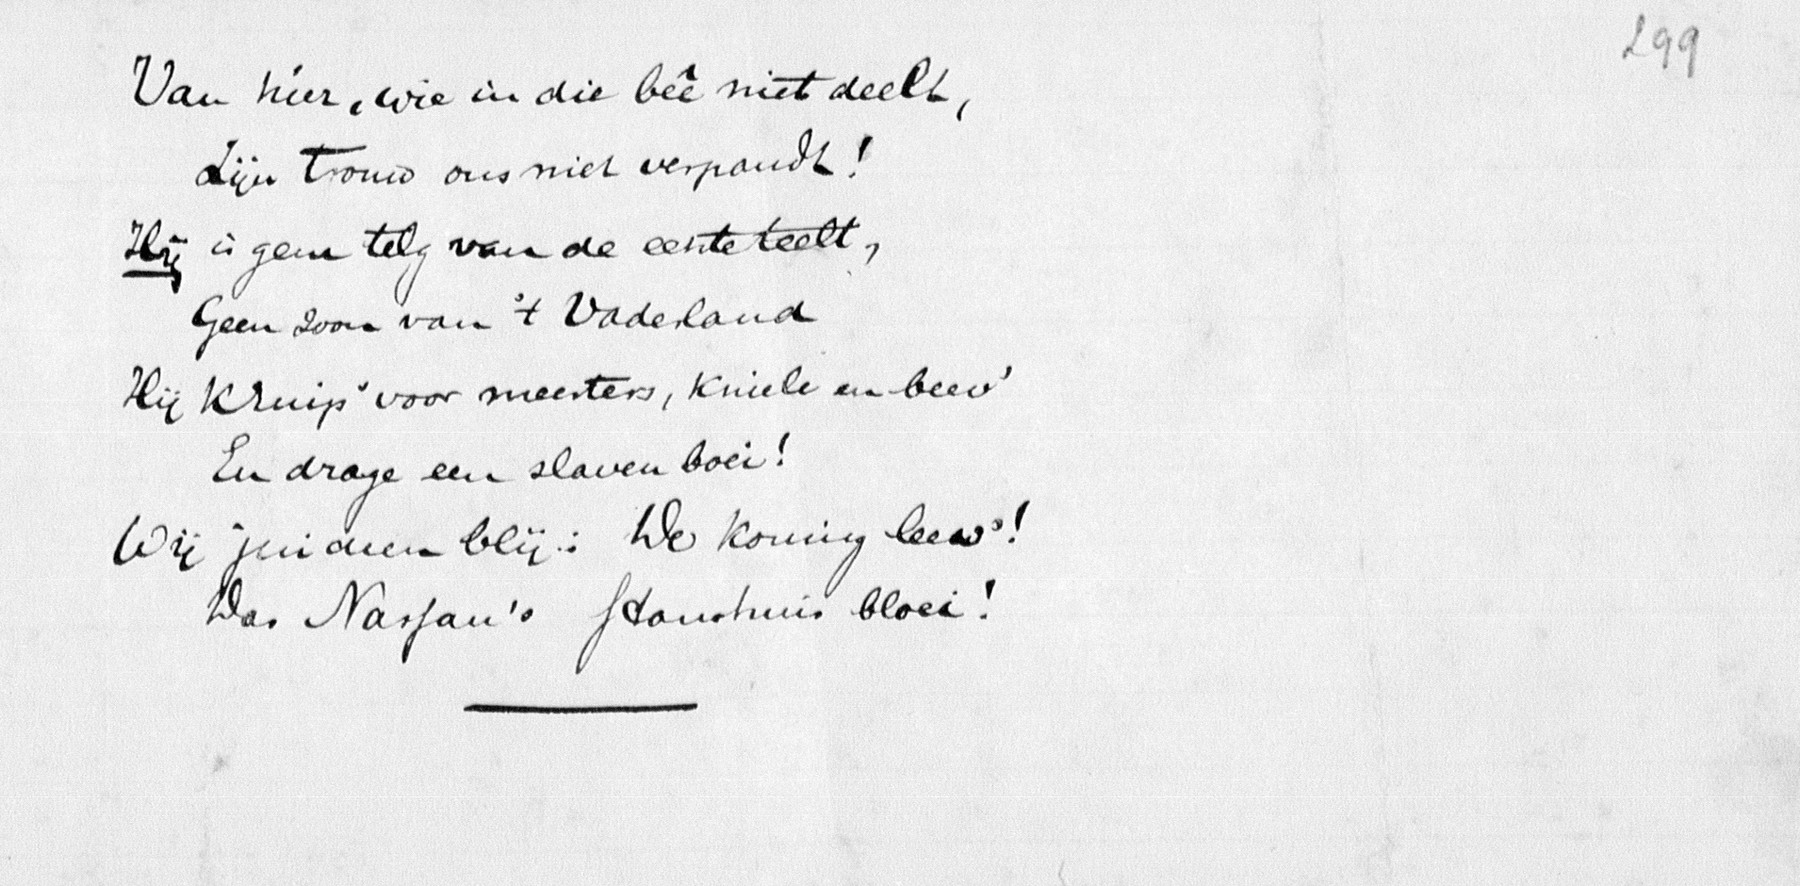 299
Van hier, wie in die beê niet deelt,
Zijn trouw ons niet verpandt!
Hij is geen telg van de eerste teelt,
Geen zoon van 't Vaderland
Hij kruip' voor meesters, kniele en beev'
En drage een slaven boei!
Wij juichen blij: De koning leev'!
Dat Nassau's Stamhuis bloei!